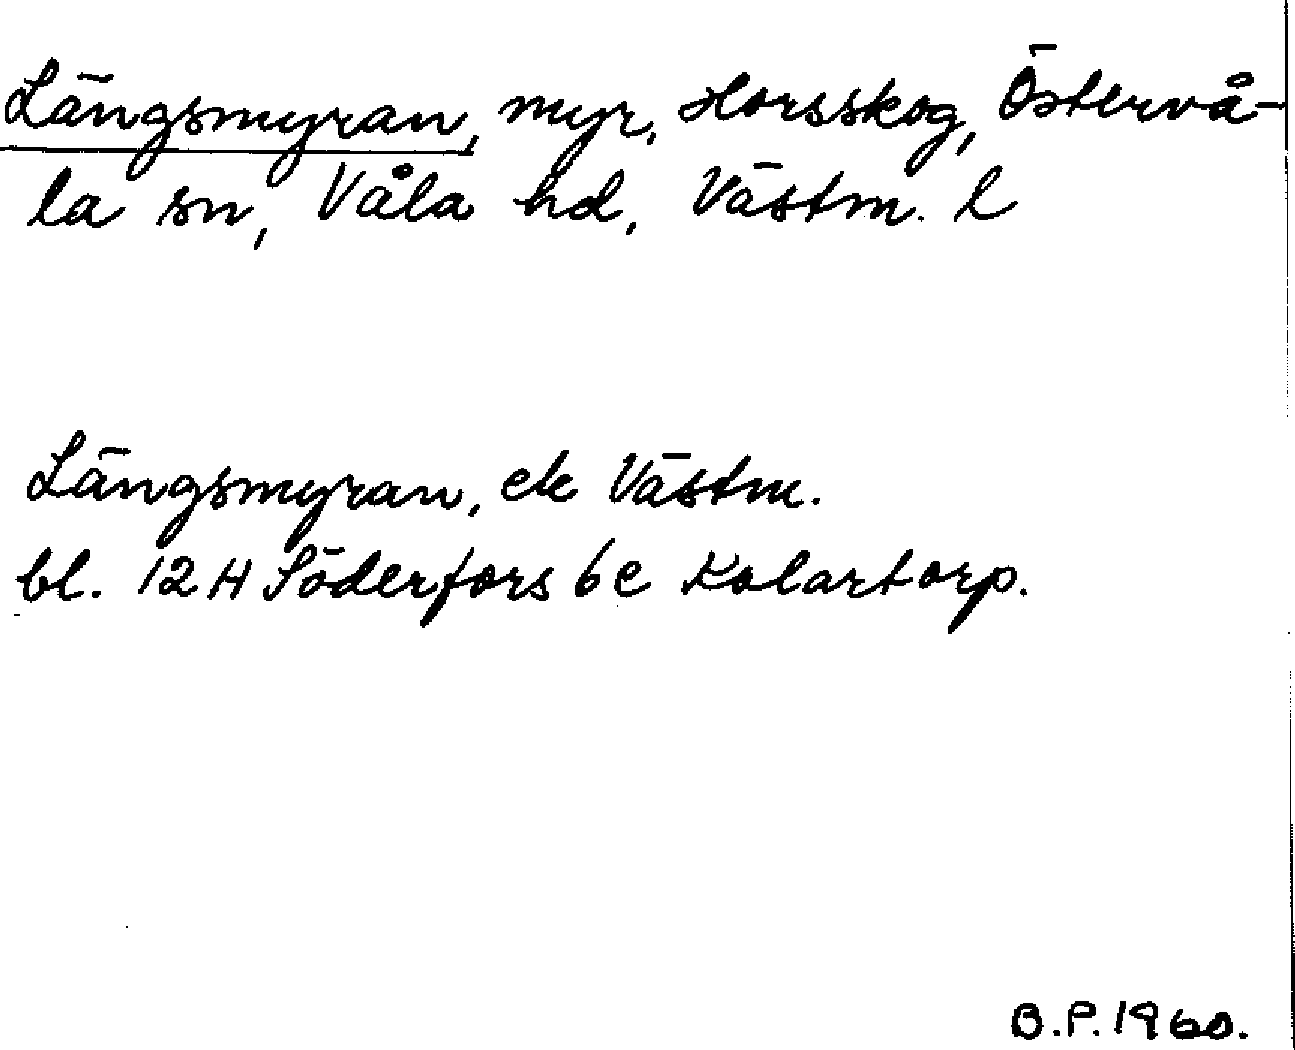 Längsmyran, myr, Horsskog, Östervå-
la sn, Våla hd, Västm. l
Längsmyran, ek Västm.
bl. 12 H Söderfors 6 e Kolartorp.
B.P. 1960.